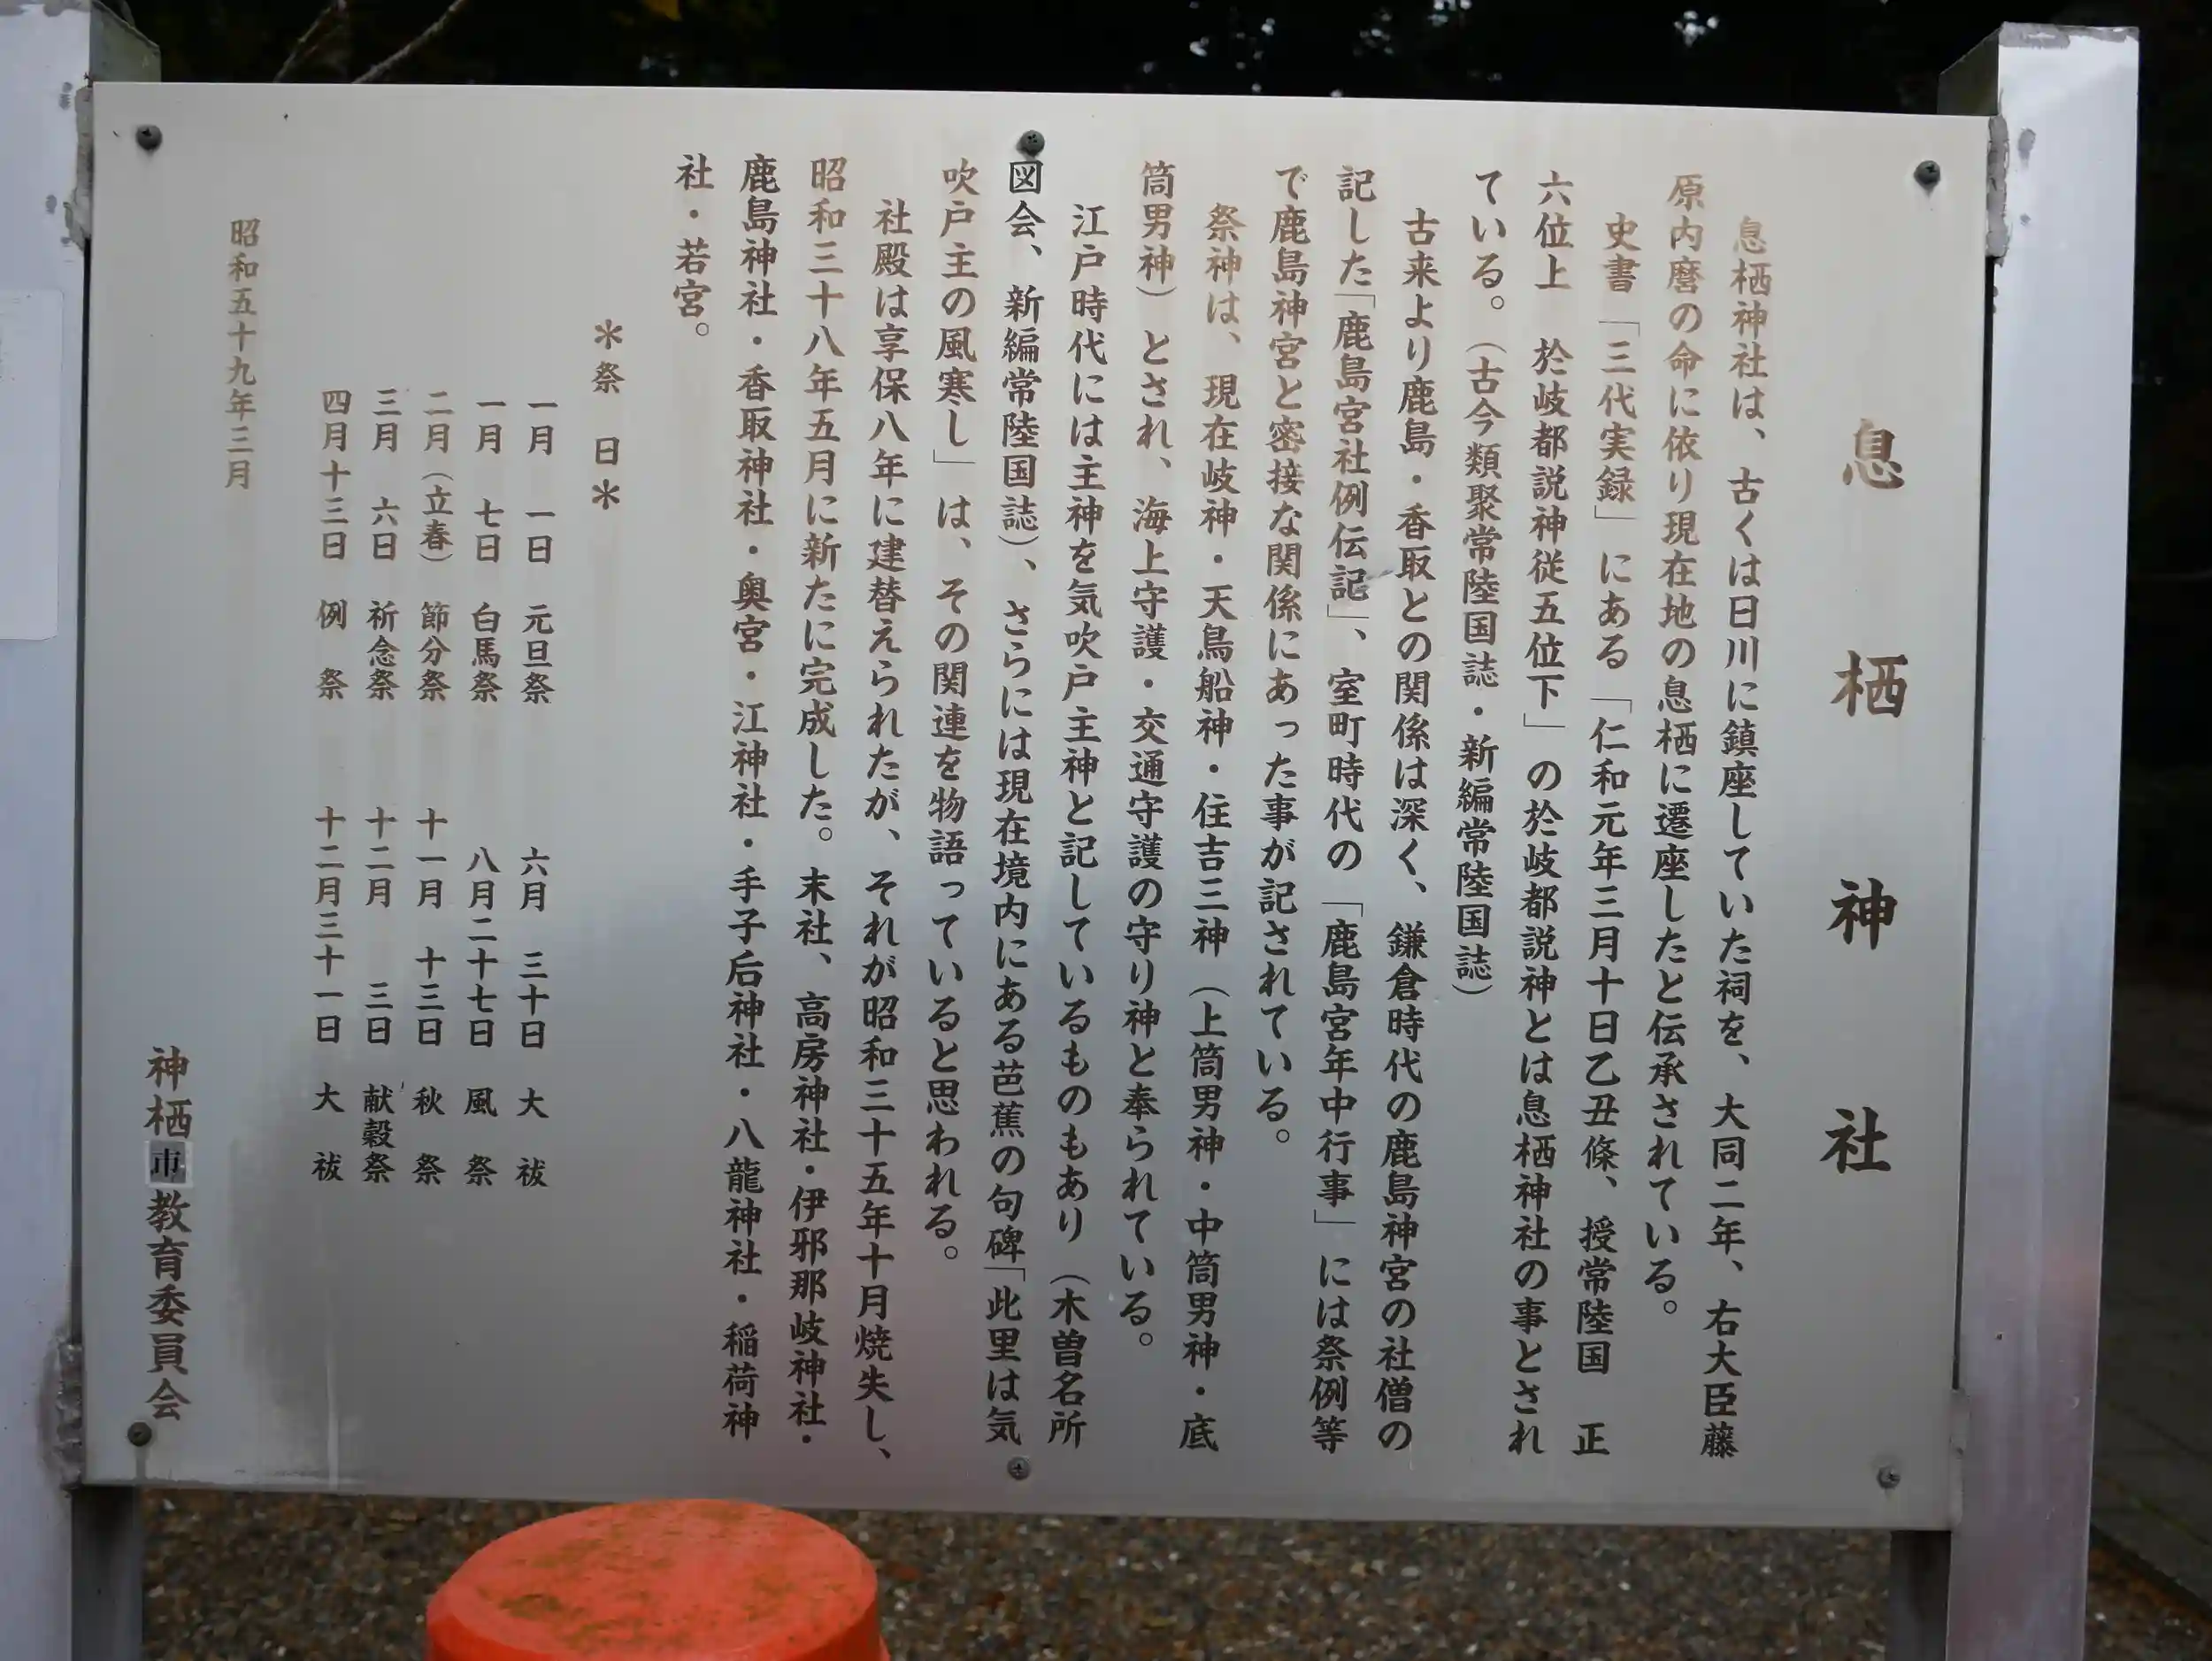 息栖神社
息栖神社は、古くは日川に鎮座していた祠を、大同二年、右大臣藤
原内麿の命に依り現在地の息栖に遷座したと伝承されている。
史書「三代実録」にある「仁和元年三月十日乙丑條、授常陸国　正
六位上　於岐都説神従五位下」の於岐都説神とは息栖神社の事とされ
ている。（古今類聚常陸国誌・新編常陸国誌）
古来より鹿島・香取との関係は深く、鎌倉時代の鹿島神宮の社僧の
記した「鹿島宮社例伝記」、室町時代の「鹿島宮年中行事」には祭例等
で鹿島神宮と密接な関係にあった事が記されている。
祭神は、現在岐神・天鳥船神・住吉三神（上筒男神・中筒男神・底
筒男神）とされ、海上守護・交通守護の守り神と奉られている。
江戸時代には主神を気吹戸主神と記しているものもあり（木曽名所
図会、新編常陸国誌）、さらには現在境内にある芭蕉の句碑「此里は気
吹戸主の風寒し」は、その関連を物語っていると思われる。
社殿は享保八年に建替えられたが、それが昭和三十五年十月焼失し、
昭和三十八年五月に新たに完成した。末社、高房神社・伊邪那岐神社・
鹿島神社・香取神社・奥宮・江神社・手子后神社・八龍神社・稲荷神
社・若宮。
＊祭　日＊
一月　一日　元旦祭　六月　三十日　大　祓
一月　七日　白馬祭　八月二十七日　風　祭
二月（立春）　節分祭　十一月　十三日　秋　祭
三月　六日　祈念祭　十二月　三日　献穀祭
四月十三日　例　祭　十二月三十一日　大　祓
昭和五十九年三月
神栖市教育委員会